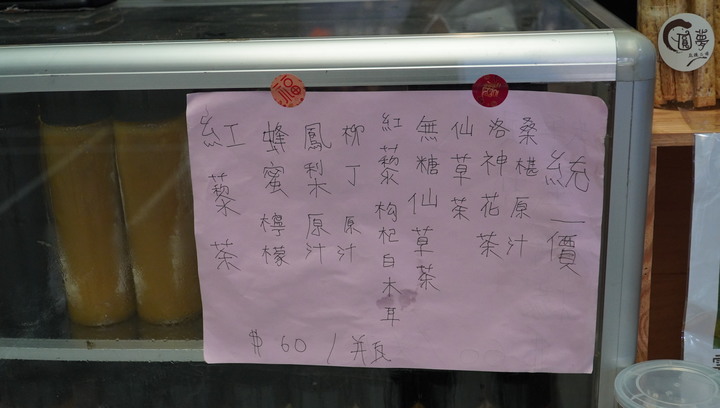 統一價
桑椹原汁
洛神花茶
仙草茶
無糖仙草茶
紅藜枸杞白木耳
柳丁原汁
鳳梨原汁
蜂蜜檸檬
紅藜茶
$60/瓶
福
圓夢